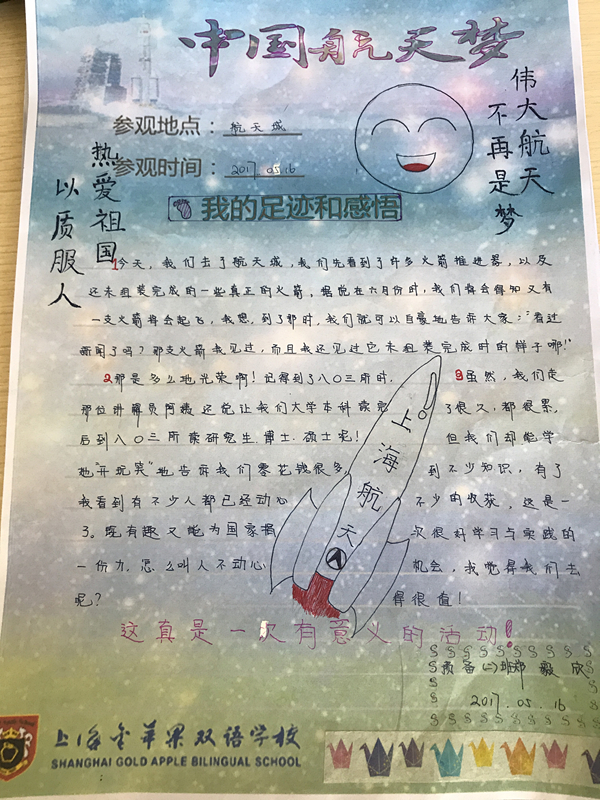 中国航天梦
伟大航天
不再是梦
参观地点：航天城
参观时间：2017.05.16
热爱祖国
以质服人
我的足迹和感悟
1今天，我们去了航天城，我们先看到了许多火箭推进器，以及
还未组装完成的一些真正的火箭。据说在六月份时，我们将会得知又有
一支火箭将会起飞，我想，到了那时，我们就可以自豪地告诉大家："看过
新闻了吗？那支火箭我见过，而且我还见过它未组装完成时的样子哪！"
2那是多么地光荣啊！记得到了八〇三所时，
那位讲解员阿姨还说让我们大学本科读完
后到八〇三所读研究生.博士.硕士呢！
她"开玩笑"地告诉我们零花钱很多，
我看到有不少人都已经动心
了。既有趣又能为国家捐
一份力，怎么叫人不动心
呢？
3虽然，我们走
了很久，都很累，
但我们却能学
到不少知识，有了
不少的收获，这是一
次很好学习与实践的
机会，我觉得我们去
得很值！
上海航天
这真是一次有意义的活动！
预备(二)班郑毅欣
2017.05.16
上海金苹果双语学校
SHANGHAI GOLD APPLE BILINGUAL SCHOOL